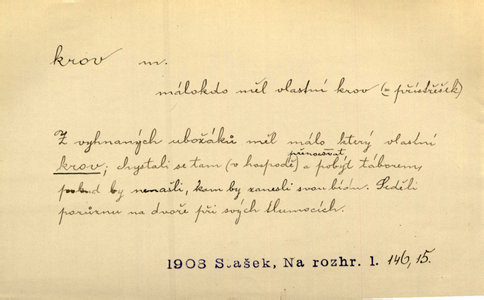 krov m.
málokdo měl vlastní krov (= přístřešek)
Z vyhnaných ubožáků měl málo který vlastní
přenocovat
krov; chystali se tam (v hospodě) a pobýt táborem,
pokud by nenašli, kam by zanesli svou bídu. Seděli
porůznu na dvoře při svých tlumocích.
1908 Stašek, Na rozhr. 1. 146, 15.